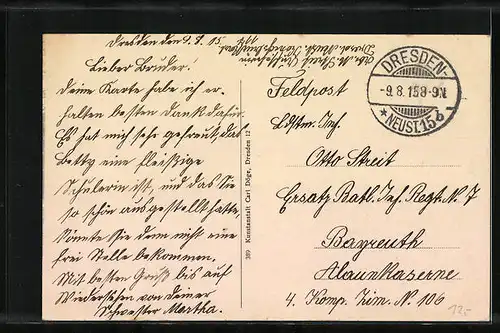 Dresden den 9. 8. 15.
Lieber Bruder!
Deine Karte habe ich er-
halten besten Dank dafür.
Es hat mich sehr gefreut, das
Betty eine fleißige
Schülerin ist, und das Sie
so schön ausgestellt hatte,
könnte Sie denn nicht eine
frei Stelle bekommen.
Mit besten Gruß bis auf
Wiedersehen von deiner
Schwester Martha.
309 Kunstanstalt Carl Döge, Dresden 12 N
DRESDEN-
-9.8.15 8-9V
* NEUST. 15 b
Feldpost
Ldstm. Inf.
Otto Streit
Ersatz Batl. Inf. Regt. N. 7
Bayreuth
Alaunkaserne
4. Komp. Zim. N. 106
12,-